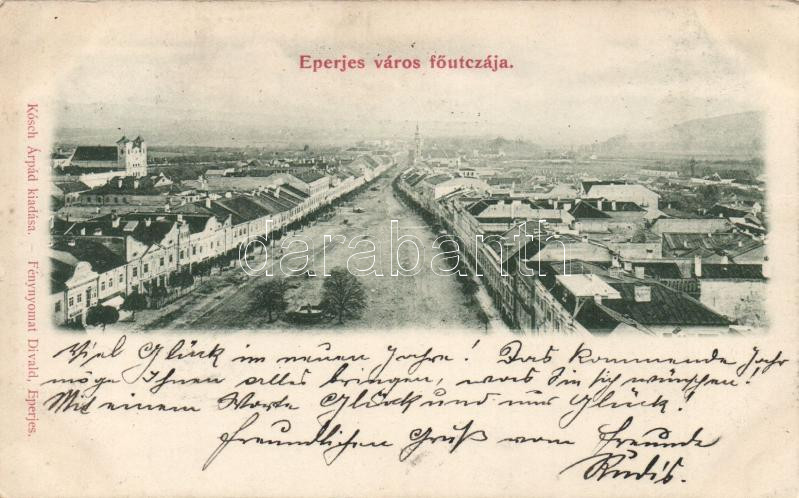 Eperjes város főutczája.
Kósch Árpád kiadása. - Fénynyomat Divald, Eperjes.
darabanth
Viel Glück im neuen Jahre! Das kommende Jahr
möge Ihnen alles bringen, was Sie sich wünschen!
Mit einem Worte Glück und nur Glück!
Freundlichen Gruß vom Freunde
Rudis.